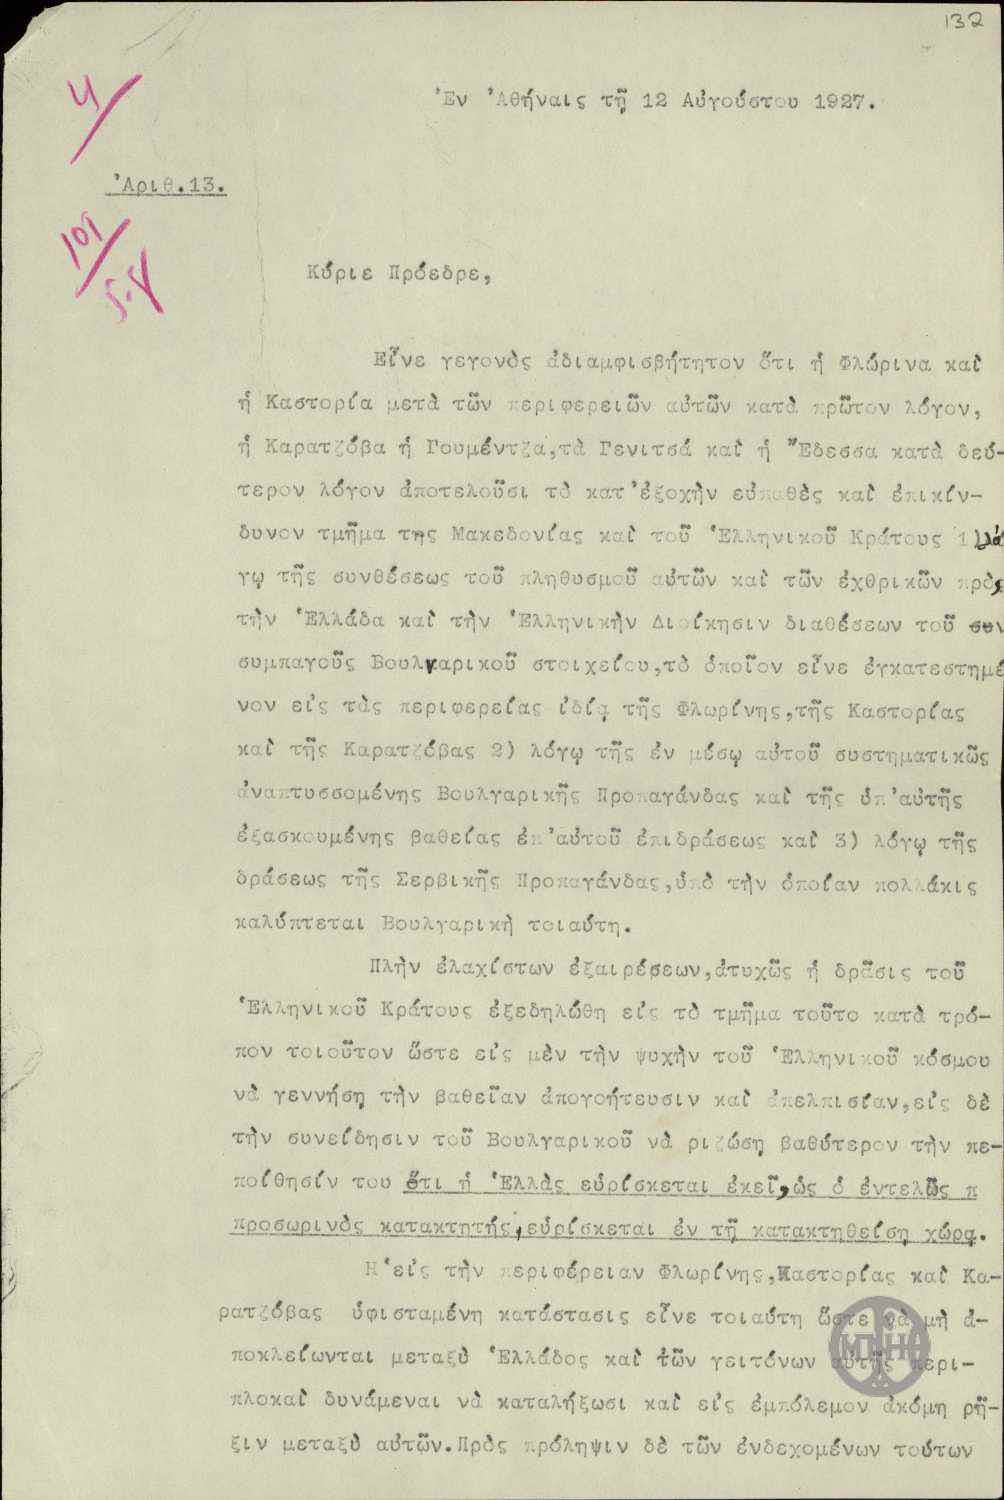 132
Ἐν Ἀθήναις τῇ 12 Αὐγούστου 1927.
4
Ἀριθ.13.
101
5-8
Κύριε Πρόεδρε,
Εἶνε γεγονὸς ἀδιαμφισβήτητον ὅτι ἡ Φλώρινα καὶ
ἡ Καστορία μετὰ τῶν περιφερειῶν αὐτῶν κατὰ πρῶτον λόγον,
ἡ Καρατζόβα ἡ Γουμέντζα,τὰ Γενιτσά καὶ ἡ Ἔδεσσα κατὰ δεύ-
τερον λόγον ἀποτελοῦσι τὸ κατ'ἐξοχὴν εὐπαθὲς καὶ ἐπικίν-
δυνον τμῆμα της Μακεδονίας καὶ τοῦ Ἑλληνικοῦ Κράτους 1)λό
γῳ τῆς συνθέσεως τοῦ πληθυσμοῦ αὐτῶν καὶ τῶν ἐχθρικῶν πρὸς
τὴν Ἑλλάδα καὶ τὴν Ἑλληνικὴν Διοίκησιν διαθέσεων τοῦ συν
συμπαγοῦς Βουλγαρικοῦ στοιχείου,τὸ ὁποῖον εἶνε ἐγκατεστημέ
νον εἰς τὰς περιφερείας ἰδίᾳ τῆς Φλωρίνης,τῆς Καστορίας
καὶ τῆς Καρατζόβας 2) λόγῳ τῆς ἐν μέσῳ αὐτοῦ συστηματικῶς
ἀναπτυσσομένης Βουλγαρικῆς Προπαγάνδας καὶ τῆς ὑπ'αὐτῆς
ἐξασκουμένης βαθείας ἐπ'αὐτοῦ ἐπιδράσεως καὶ 3) λόγῳ τῆς
δράσεως τῆς Σερβικῆς Προπαγάνδας,ὑπὸ τὴν ὁποίαν πολλάκις
καλύπτεται Βουλγαρικὴ τοιαύτη.
Πλὴν ἐλαχίστων ἐξαιρέσεων,ἀτυχῶς ἡ δρᾶσις τοῦ
Ἑλληνικοῦ Κράτους ἐξεδηλώθη εἰς τὸ τμῆμα τοῦτο κατὰ τρό-
πον τοιοῦτον ὥστε εἰς μὲν τὴν ψυχὴν τοῦ Ἑλληνικοῦ κόσμου
νὰ γεννήσῃ τὴν βαθεῖαν ἀπογοήτευσιν καὶ ἀπελπισίαν,εἰς δὲ
τὴν συνείδησιν τοῦ Βουλγαρικοῦ νὰ ριζώσῃ βαθύτερον τὴν πε-
ποίθησίν του ὅτι ἡ Ἑλλὰς εὑρίσκεται ἐκεῖ,ὡς ὁ ἐντελῶς π
προσωρινὸς κατακτητής,εὑρίσκεται ἐν τῇ κατακτηθείσῃ χώρᾳ.
Ἡ εἰς τὴν περιφέρειαν Φλωρίνης,Καστορίας καὶ Κα-
ρατζόβας ὑφισταμένη κατάστασις εἶνε τοιαύτη ὥστε νὰ μὴ ἀ-
ποκλείωνται μεταξὺ Ἑλλάδος καὶ τῶν γειτόνων αὐτῆς περι-
πλοκαὶ δυνάμεναι νὰ καταλήξωσι καὶ εἰς ἐμπόλεμον ἀκόμη ρῆ-
ξιν μεταξὺ αὐτῶν.Πρὸς πρόληψιν δὲ τῶν ἐνδεχομένων τούτων